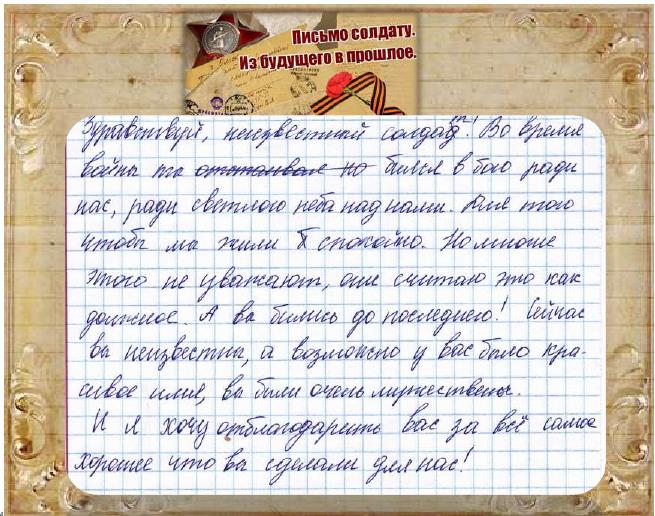 Письмо солдату.
Из будущего в прошлое.
Здравствуй, неизвестный солдат! Во время
войны ты отстаивал но бился в бою ради
нас, ради светлого неба над нами. Для того
чтобы мы жили спокойно. Но многие
этого не уважают, они считаю это как
должное. А вы бились до последнего! Сейчас
вы неизвестны, а возможно у вас было кра-
сивое имя, вы были очень мужествены.
И я хочу отблагодарить вас за всё самое
хорошее что вы сделали для нас!